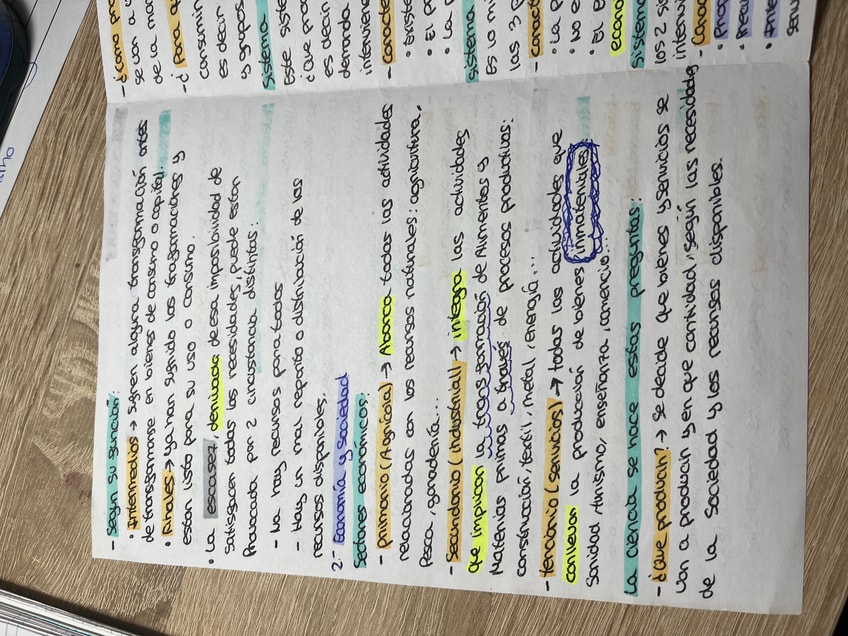 - Según su función:
• Intermedios → sufren alguna transformación antes
de transformarse en bienes de consumo o capital.
• Finales → ya han sufrido las trasformaciones y
están listo para su uso o consumo.
• La escasez, derivada de esa imposibilidad de
satisfacer todas las necesidades, puede estar
Provocada por 2 circustancia distintas:
- No hay recursos para todos
- Hay un mal reparto o distribución de los
recursos disponibles.
2- Economía y sociedad
Sectores económicos:
- primario (Agrícola) → Abarca todas las actividades
relacionadas con los recursos naturales: agricultura,
Pesca, ganadería...
- Secundario (industrial) → integra las actividades
que implican la transformación de Alimentos y
Materias primas a través de procesos productivos:
construcción, textil, metal, energía...
- terciario (servicios) → todas las actividades que
conllevan la producción de bienes inmateriales:
Sanidad, turismo, enseñanza, comercio...
La ciencia se hace estas preguntas:
- ¿Que producir? → se decide que bienes y servicios se
van a producir y en que cantidad, según las necesidades
de la Sociedad y los recursos disponibles.
- ¿Como pro
se van a
de la mane
- ¿Para q
consumir
es decir
y grupos
Sistema
Este siste
¿Que pro
es decir
demanda
intervien
- Caracte
• Existe
• El p
• La
sistema
Es lo mi
las 3
- caract
• La p
• No e
• El E
econo
Sistem
los 2 si
intervi
- Carac
• Prop
• Inte
serv